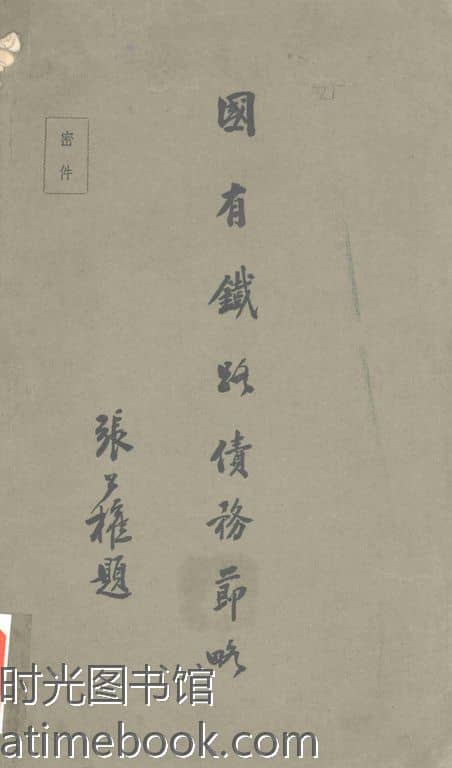 國有鐵路債務節略
張公權題
密件
时光图书馆
atimebook.com